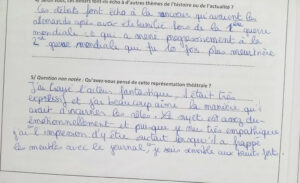 4) Selon vous, ces débats font-ils écho à d'autres thèmes de l'histoire ou de l'actualité ?
Ces débats font écho à la rancœur qu'avaient les
allemands après avoir été humilié lors de la 1ère guerre
mondiale ce qui a mené progressivement à la
2nde guerre mondiale qui fu 10 fois plus meurtrière
5) Question non notée : Qu'avez-vous pensé de cette représentation théâtrale ?
J'ai trouvé l'acteur fantastique, il était très
expressif et j'ai beaucoup aimé la manière qu'il
avait d'incarner les rôles. Le sujet est assez dur
émotionnellement et puisque je suis très empathique
j'ai l'impression d'y être surtout lorsqu'il a frappé
les meubles avec le journal, je suis sensible aux bruits fort.